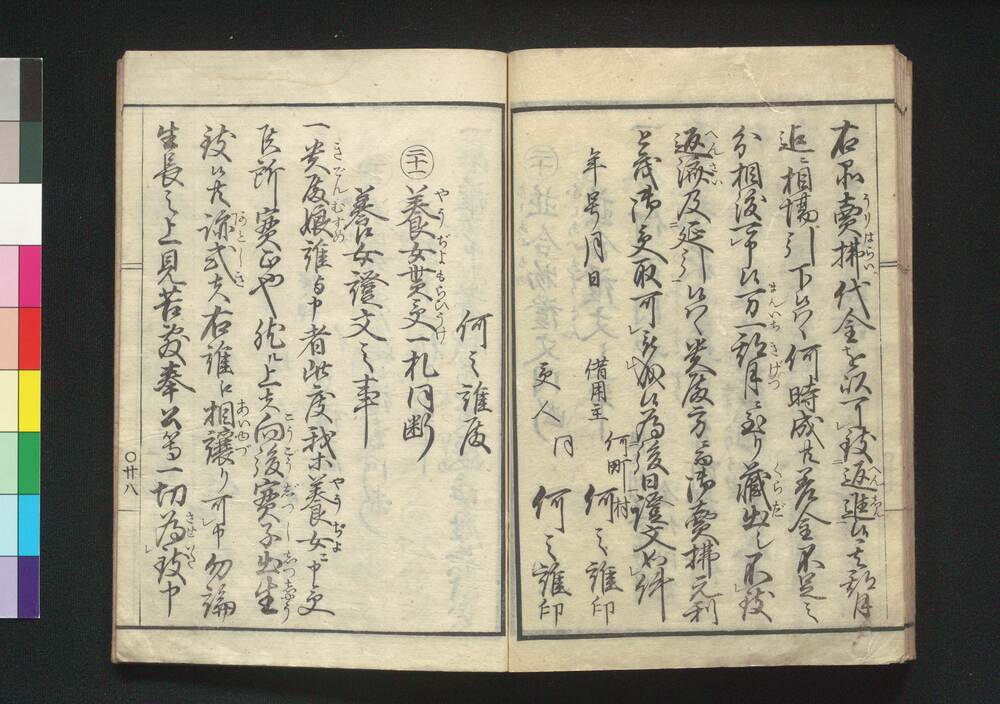 右品賣拂代金を以可致返進候尤期月
迄ニ相場引下候ハヽ何時成共差金不足之
分相渡可申候万一期月ニ至り藏出し不致
返済及延引候ハヽ貴殿方ニ而御賣拂元利
と茂御受取可被成候為後日證文如件
年号月日
借用主 何町村 何之誰印
受人 同 何之誰印
何之誰殿
二十一 養女貰受一札同断
養女證文之事
一貴殿娘誰与申者此度我等養女ニ申受
候所實正也然ル上者向後實子出生
致候共跡式者右誰江相譲り可申勿論
生長之上見苦敷奉公等一切為致申
〇廿八